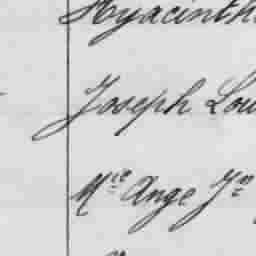 Hyacinth
Joseph Lou
Mie Ange Jn